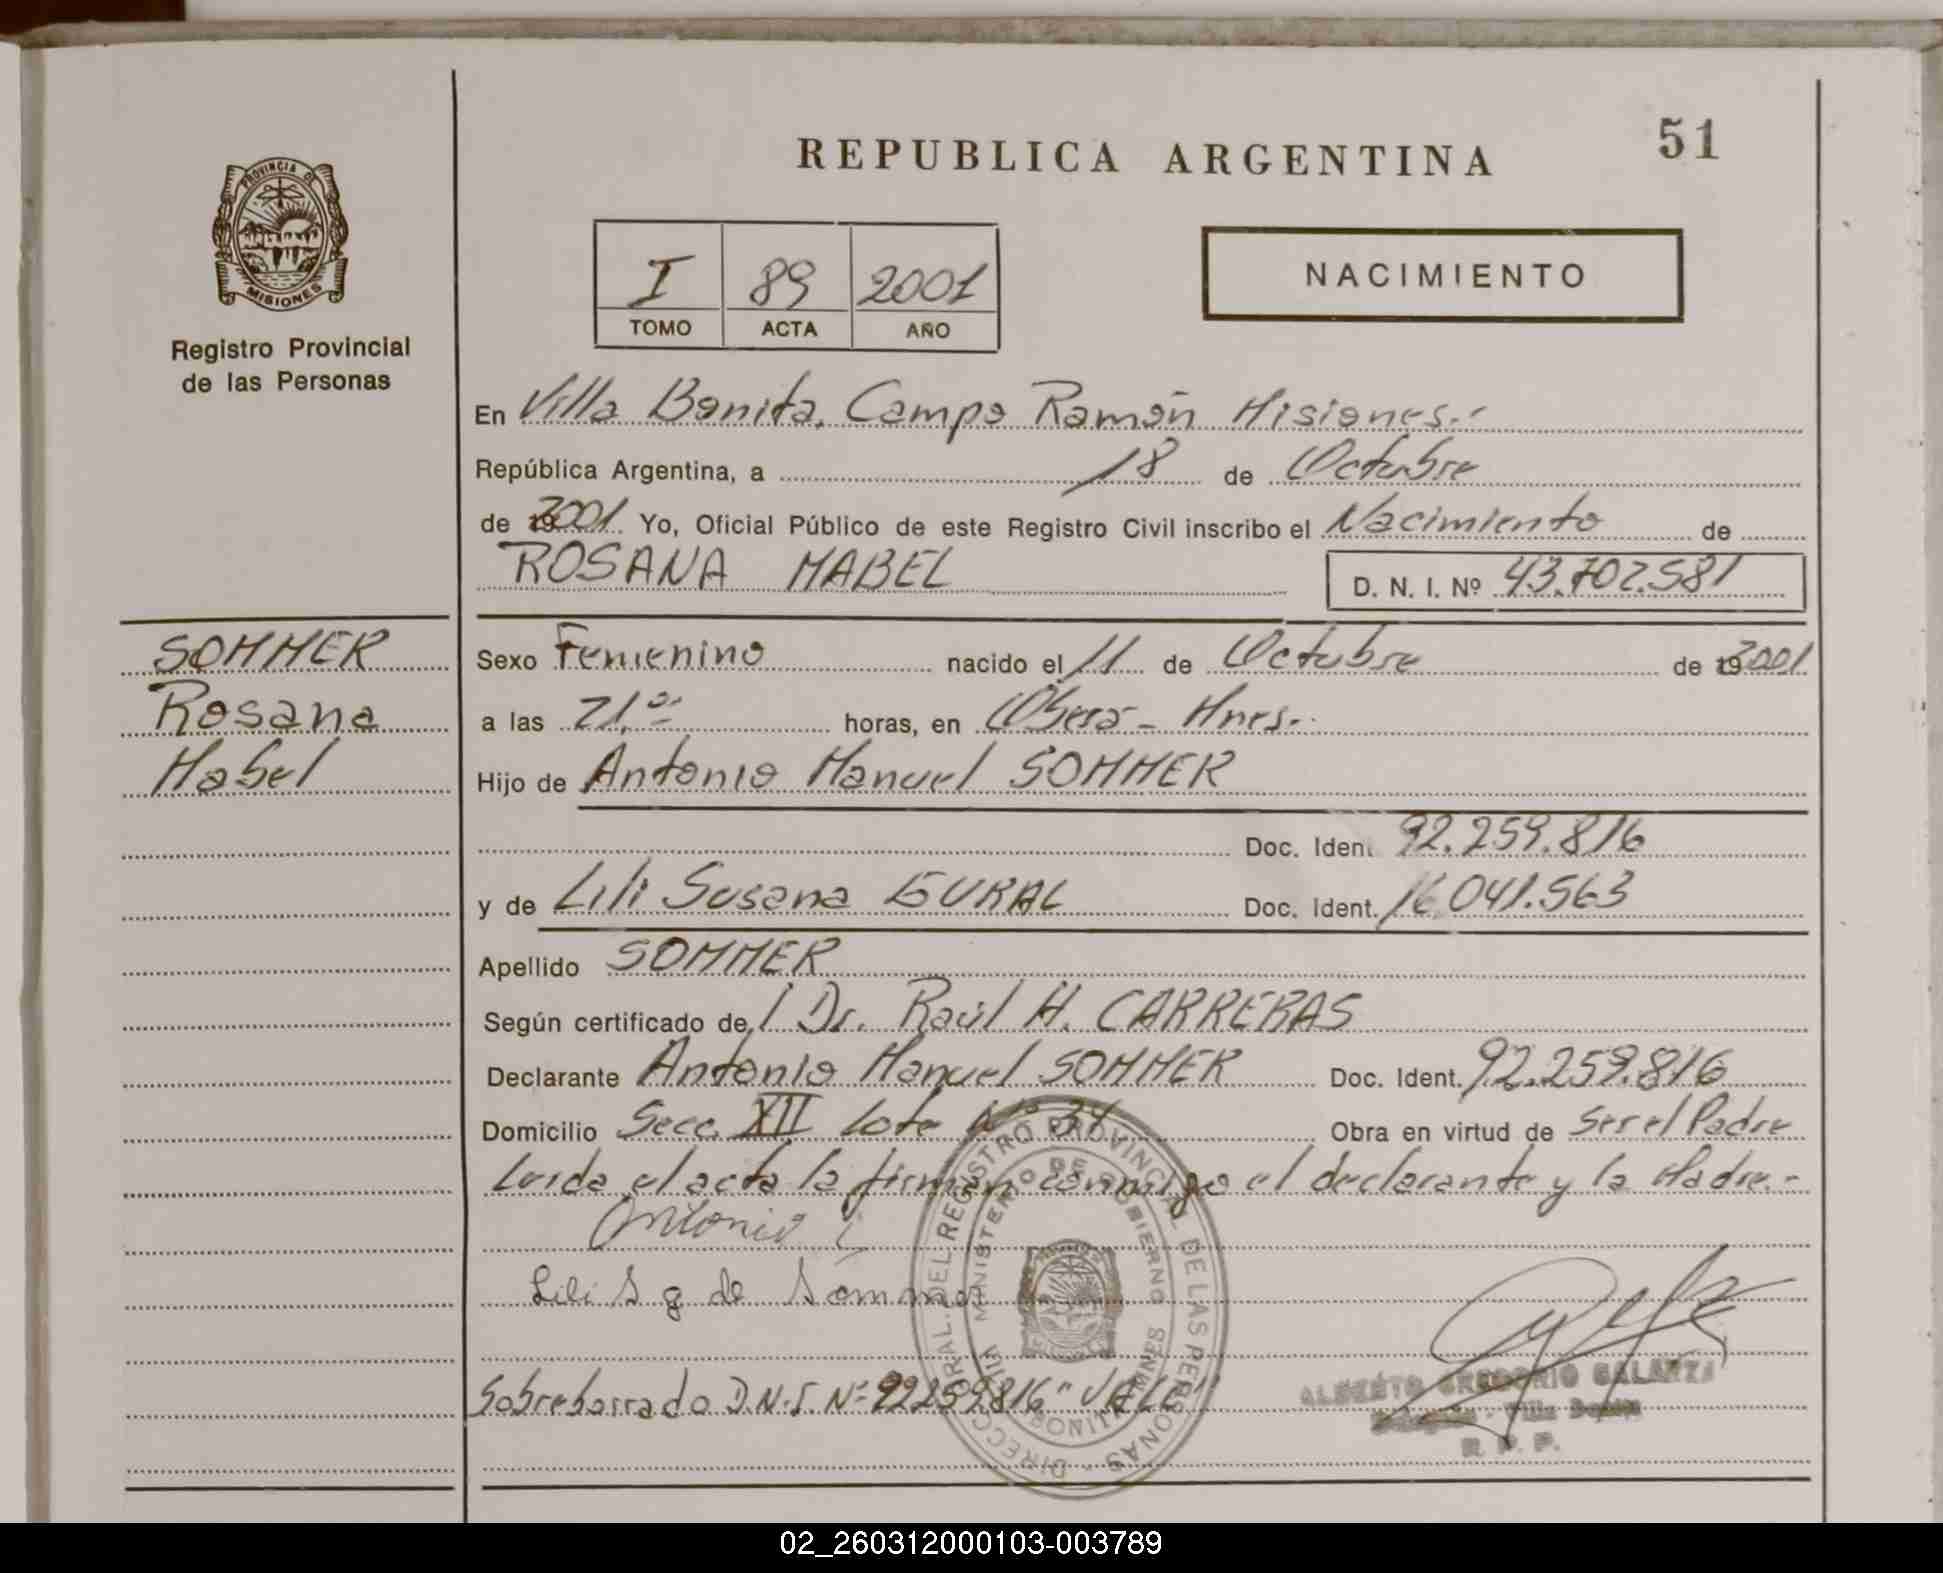 REPUBLICA ARGENTINA
51
PROVINCIA DE
MISIONES
Registro Provincial
de las Personas
I 89 2001
TOMO ACTA AÑO
NACIMIENTO
En Villa Bonita, Campo Ramón Misiones.-
República Argentina, a 18 de Octubre
de 2001 Yo, Oficial Público de este Registro Civil inscribo el Nacimiento de
ROSANA MABEL D. N. I. Nº 43.702.581
SOMMER
Rosana
Mabel
Sexo Femenino nacido el 11 de Octubre de 2001
a las 21,00 horas, en Oberá - Mnes.-
Hijo de Antonio Manuel SOMMER
Doc. Ident. 92.259.816
y de Lili Susana GURAL Doc. Ident. 16.041.563
Apellido SOMMER
Según certificado de l Dr. Raúl H. CARRERAS
Declarante Antonio Manuel SOMMER Doc. Ident. 92.259.816
Domicilio Secc. XII Lote Nº 34 Obra en virtud de ser el Padre
Leida el acta la firman conmigo el declarante y la Madre.-
Antonio S
Lili S g de Sommer
Sobreborrado D.N.I. Nº 92259816 "VALE"
DIRECC. GRAL. DEL REGISTRO PROVINCIAL DE LAS PERSONAS
MINISTERIO DE GOBIERNO
ALBERTO GREGORIO GALARZA
Delegado - Villa Bonita
R. P. P.
02_260312000103-003789